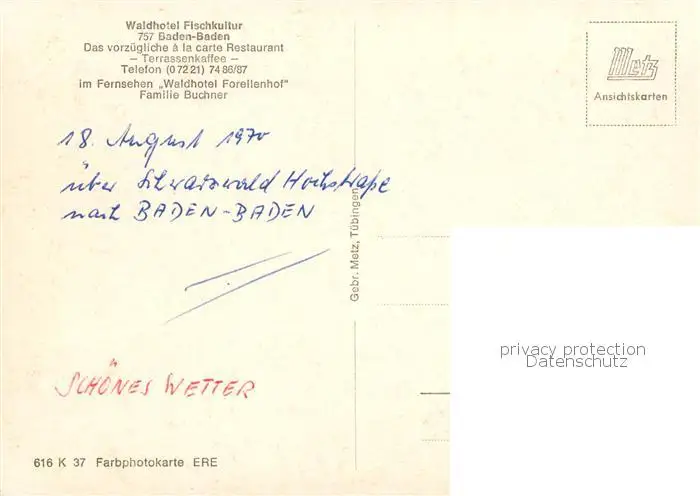 Waldhotel Fischkultur
757 Baden-Baden
Das vorzügliche à la carte Restaurant
— Terrassenkaffee —
Telefon (0 72 21) 74 86/87
im Fernsehen „Waldhotel Forellenhof"
Familie Buchner
18. August 1970
über Schwarzwald Hochstraße
nach BADEN-BADEN
SCHÖNES WETTER
616 K 37 Farbphotokarte ERE
Gebr. Metz, Tübingen
Metz
Ansichtskarten
privacy protection
Datenschutz